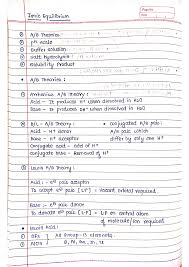 Ionic Equilibrium
A/B Theories
pH scale
Buffer solution
Salt Hydrolysis
Solubility Product
A/B Theories:
Arrhenius A/B Theory:
Acid - It produces H+ when dissolved in H2O
Base - It produces OH- when dissolved in H2O
B/L - A/B Theory: Conjugated A/B pair:
Acid - H+ donor A/B pair which
Base - H+ acceptor differ by only one H+
Conjugate acid - Add of H+
Conjugate base - Removal of H+
Lewis A/B Theory:
Acid :- e- pair acceptor
To accept e- pair [LP] = Vacant orbital required.
Base :- e- pair donor
To donate e- pair [LP] = LP on central atom
of molecule/ion required
Lewis Acid:
All Group-13 elements